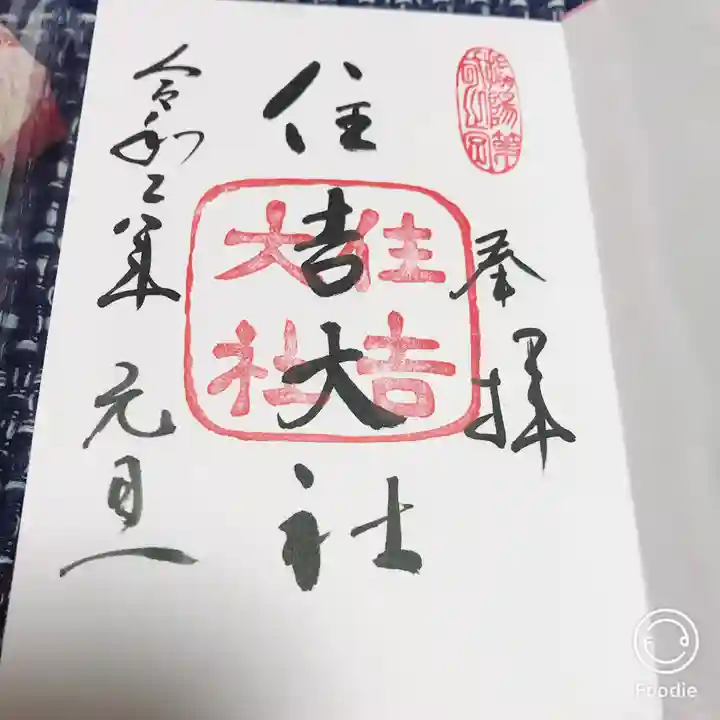 奉拝
住吉大社
住吉
大社
令和二年 元旦
Foodie